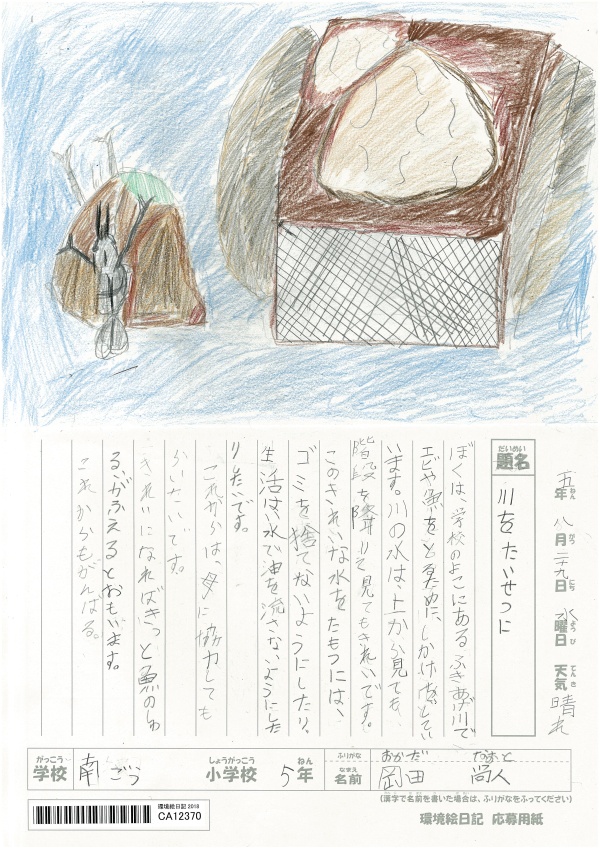 五年 八月二十九日 水曜日 天気 晴れ
ねん がつ にち ようび てんき
だいめい
題名
川をたいせつに
ぼくは、学校のよこにあるふきあげ川で
エビや魚をとるために、しかけ
います。川の水は、上から見ても、
階段を降りて見てもきれいです。
このきれいな水をたもつには、
ゴミを捨てないようにしたり、
生活はい水で油を流さないようにした
りしたいです。
これからは、母に協力しても
らいたいです。
きれいになればきっと魚のしゅ
るいがふえるとおもいます。
これからもがんばる。
がっこう しょうがっこう ねん ふりがな おかだ
学校 南ごう 小学校 5年 なまえ 名前 岡田 尚人
(漢字で名前を書いた場合は、ふりがなをふってください)
環境絵日記 2018
CA12370
環境絵日記 応募用紙